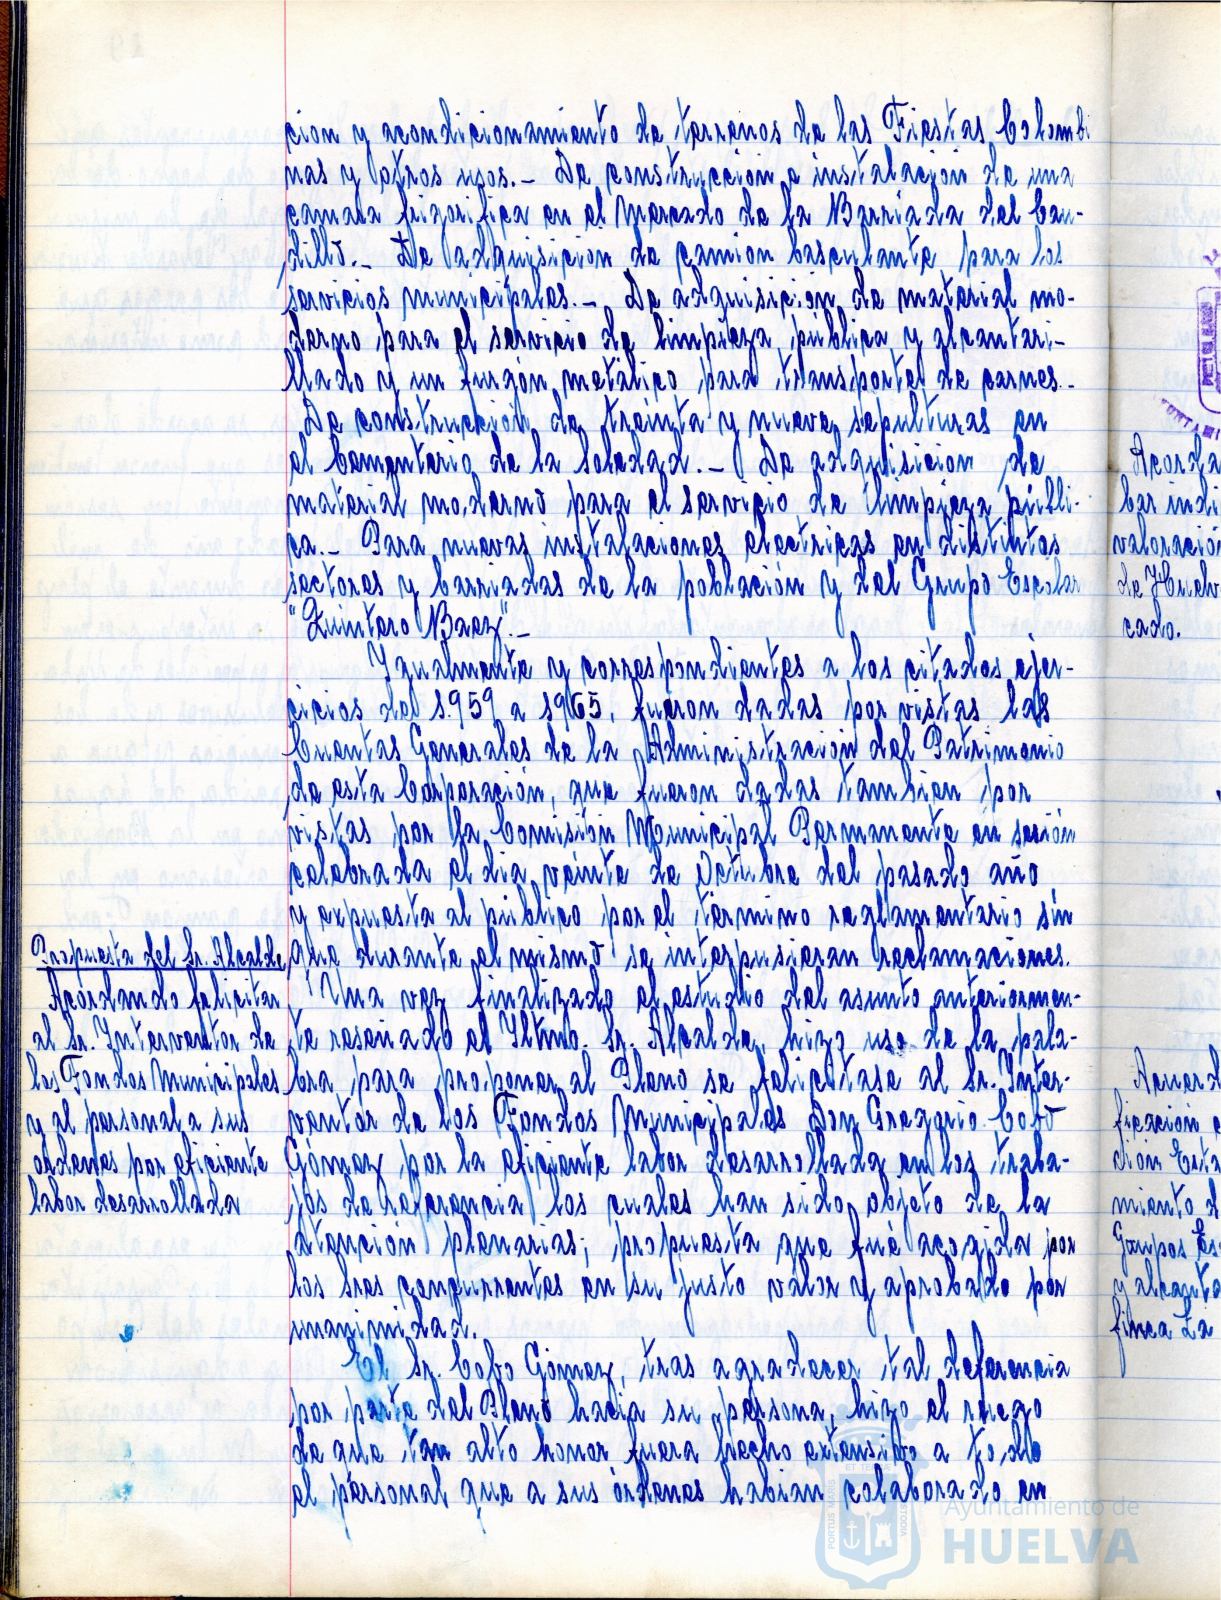 cion y acondicionamiento de terrenos de las Fiestas Colombi
nas y otros usos.- De construccion e instalación de una
camara frigorifica en el Mercado de la Barriada del Cau-
dillo.- De adquisicion de camion basculante para los
servicios municipales.- De adquisicion de material mo-
derno para el servicio de limpieza pública y alcantari-
llado y un furgón metálico para transporte de carnes.-
De construcción de treinta y nueve sepulturas en
el Cementerio de la Soledad.- De adquisicion de
material moderno para el servicio de limpieza públi-
ca.- Para nuevas instalaciones electricas en distintos
sectores y barriadas de la población y del Grupo Escolar
"Quintero Baez".-
Igualmente y correspondientes a los citados ejer-
cicios de 1.959 a 1965, fueron dadas por vistas las
Cuentas Generales de la Administración del Patrimonio
de esta Corporación, que fueron dadas tambien por
vistas por la Comisión Municipal Permanente en sesión
celebrada el dia veinte de Octubre del pasado año
y expuesta al público por el término reglamentario sin
que durante el mismo se interpusieran reclamaciones.
Una vez finalizado el estudio del asunto anteriormen-
te reseñado el Iltmo. Sr. Alcalde, hizo uso de la pala-
bra para proponer al Pleno se felicitase al Sr. Inter-
ventor de los Fondos Municipales Don Gregorio Cobo
Gómez por la eficiente labor desarrollada en los traba-
jos de referencia los cuales han sido objeto de la
atención plenarias; propuesta que fué acogida por
los sres concurrentes en su justo valor y aprobado por
unanimidad.
El Sr. Cobo Gómez, tras agradecer tal deferencia
por parte del Pleno hacia su persona, hizo el ruego
de que tan alto honor fuera hecho extensivo a todo
el personal que a sus órdenes habian colaborado en
Propuesta del Sr. Alcalde
Acordando felicitar
al Sr. Interventor de
los Fondos Municipales
y al personal a sus
ordenes por eficiente
labor desarrollada
Acorda
bar indi
valoración
de Huelv
cado.
Acuerd
ficación
ción Esta
miento d
Grupos Es
y alcanta
finca La
Ayuntamiento de
HUELVA